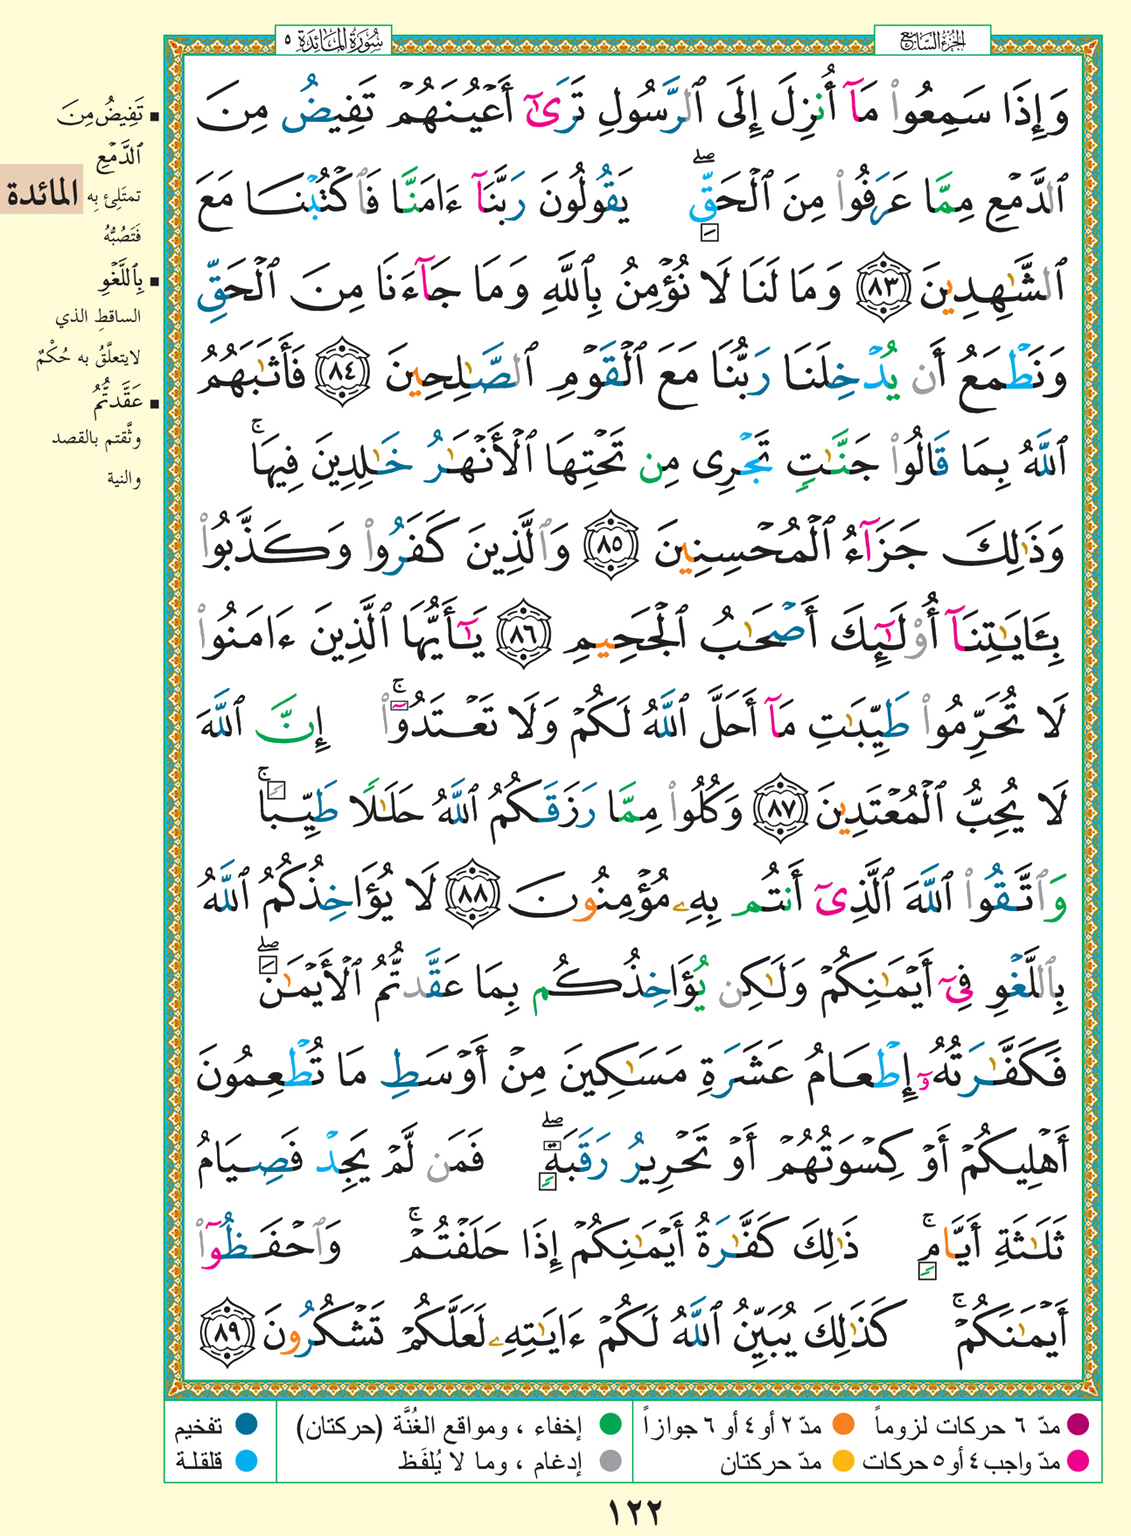 الجزء السابع
سورة المائدة ٥
وَإِذَا سَمِعُوا۟ مَآ أُنزِلَ إِلَى ٱلرَّسُولِ تَرَىٰٓ أَعْيُنَهُمْ تَفِيضُ مِنَ
ٱلدَّمْعِ مِمَّا عَرَفُوا۟ مِنَ ٱلْحَقِّ ۖ يَقُولُونَ رَبَّنَآ ءَامَنَّا فَٱكْتُبْنَا مَعَ
ٱلشَّٰهِدِينَ ٨٣ وَمَا لَنَا لَا نُؤْمِنُ بِٱللَّهِ وَمَا جَآءَنَا مِنَ ٱلْحَقِّ
وَنَطْمَعُ أَن يُدْخِلَنَا رَبُّنَا مَعَ ٱلْقَوْمِ ٱلصَّٰلِحِينَ ٨٤ فَأَثَٰبَهُمُ
ٱللَّهُ بِمَا قَالُوا۟ جَنَّٰتٍ تَجْرِى مِن تَحْتِهَا ٱلْأَنْهَٰرُ خَٰلِدِينَ فِيهَا ۚ
وَذَٰلِكَ جَزَآءُ ٱلْمُحْسِنِينَ ٨٥ وَٱلَّذِينَ كَفَرُوا۟ وَكَذَّبُوا۟
بِـَٔايَٰتِنَآ أُو۟لَٰٓئِكَ أَصْحَٰبُ ٱلْجَحِيمِ ٨٦ يَٰٓأَيُّهَا ٱلَّذِينَ ءَامَنُوا۟
لَا تُحَرِّمُوا۟ طَيِّبَٰتِ مَآ أَحَلَّ ٱللَّهُ لَكُمْ وَلَا تَعْتَدُوٓا۟ ۚ إِنَّ ٱللَّهَ
لَا يُحِبُّ ٱلْمُعْتَدِينَ ٨٧ وَكُلُوا۟ مِمَّا رَزَقَكُمُ ٱللَّهُ حَلَٰلًا طَيِّبًا ۚ
وَٱتَّقُوا۟ ٱللَّهَ ٱلَّذِىٓ أَنتُم بِهِۦ مُؤْمِنُونَ ٨٨ لَا يُؤَاخِذُكُمُ ٱللَّهُ
بِٱللَّغْوِ فِىٓ أَيْمَٰنِكُمْ وَلَٰكِن يُؤَاخِذُكُم بِمَا عَقَّدتُّمُ ٱلْأَيْمَٰنَ ۖ
فَكَفَّٰرَتُهُۥٓ إِطْعَامُ عَشَرَةِ مَسَٰكِينَ مِنْ أَوْسَطِ مَا تُطْعِمُونَ
أَهْلِيكُمْ أَوْ كِسْوَتُهُمْ أَوْ تَحْرِيرُ رَقَبَةٍ ۖ فَمَن لَّمْ يَجِدْ فَصِيَامُ
ثَلَٰثَةِ أَيَّامٍ ۚ ذَٰلِكَ كَفَّٰرَةُ أَيْمَٰنِكُمْ إِذَا حَلَفْتُمْ ۚ وَٱحْفَظُوٓا۟
أَيْمَٰنَكُمْ ۚ كَذَٰلِكَ يُبَيِّنُ ٱللَّهُ لَكُمْ ءَايَٰتِهِۦ لَعَلَّكُمْ تَشْكُرُونَ ٨٩
▪ تَفِيضُ مِنَ
ٱلدَّمْعِ
تمتلئ بِه
فَتَصُبُّهُ
▪ بِٱللَّغْوِ
الساقطِ الذي
لا يتعلَّقُ به حُكْمٌ
▪ عَقَّدتُّمُ
وثَّقتم بالقصد
والنية
المائدة
مدّ ٦ حركات لزوماً
مدّ ٢ أو ٤ أو ٦ جوازاً
إخفاء ، ومواقع الغُنَّة (حركتان)
تفخيم
مدّ واجب ٤ أو ٥ حركات
مدّ حركتان
إدغام ، وما لا يُلفَظ
قلقلة
١٢٢